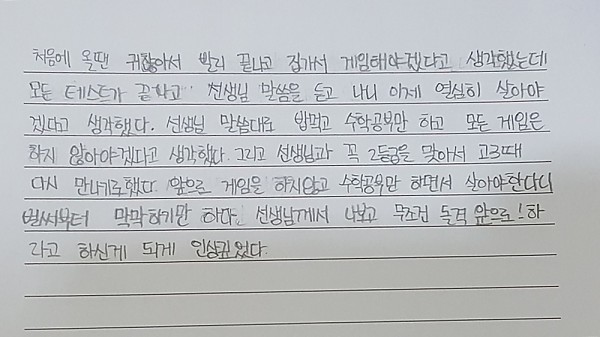 처음에 올땐 귀찮아서 빨리 끝나고 집가서 게임해야겠다고 생각했는데
모든 테스트가 끝나고 선생님 말씀을 듣고 나니 이제 열심히 살아야
겠다고 생각했다. 선생님 말씀대로 밥먹고 수학공부만 하고 모든 게임은
하지 않아야겠다고 생각했다. 그리고 선생님과 꼭 2등급을 맞아서 고3때
다시 만나기로했다. 앞으로 게임을 하지않고 수학공부만 하면서 살아야한다니
벌써부터 막막하기만 하다. 선생님께서 나보고 무조건 돌격 앞으로! 하
라고 하신게 되게 인상깊었다.